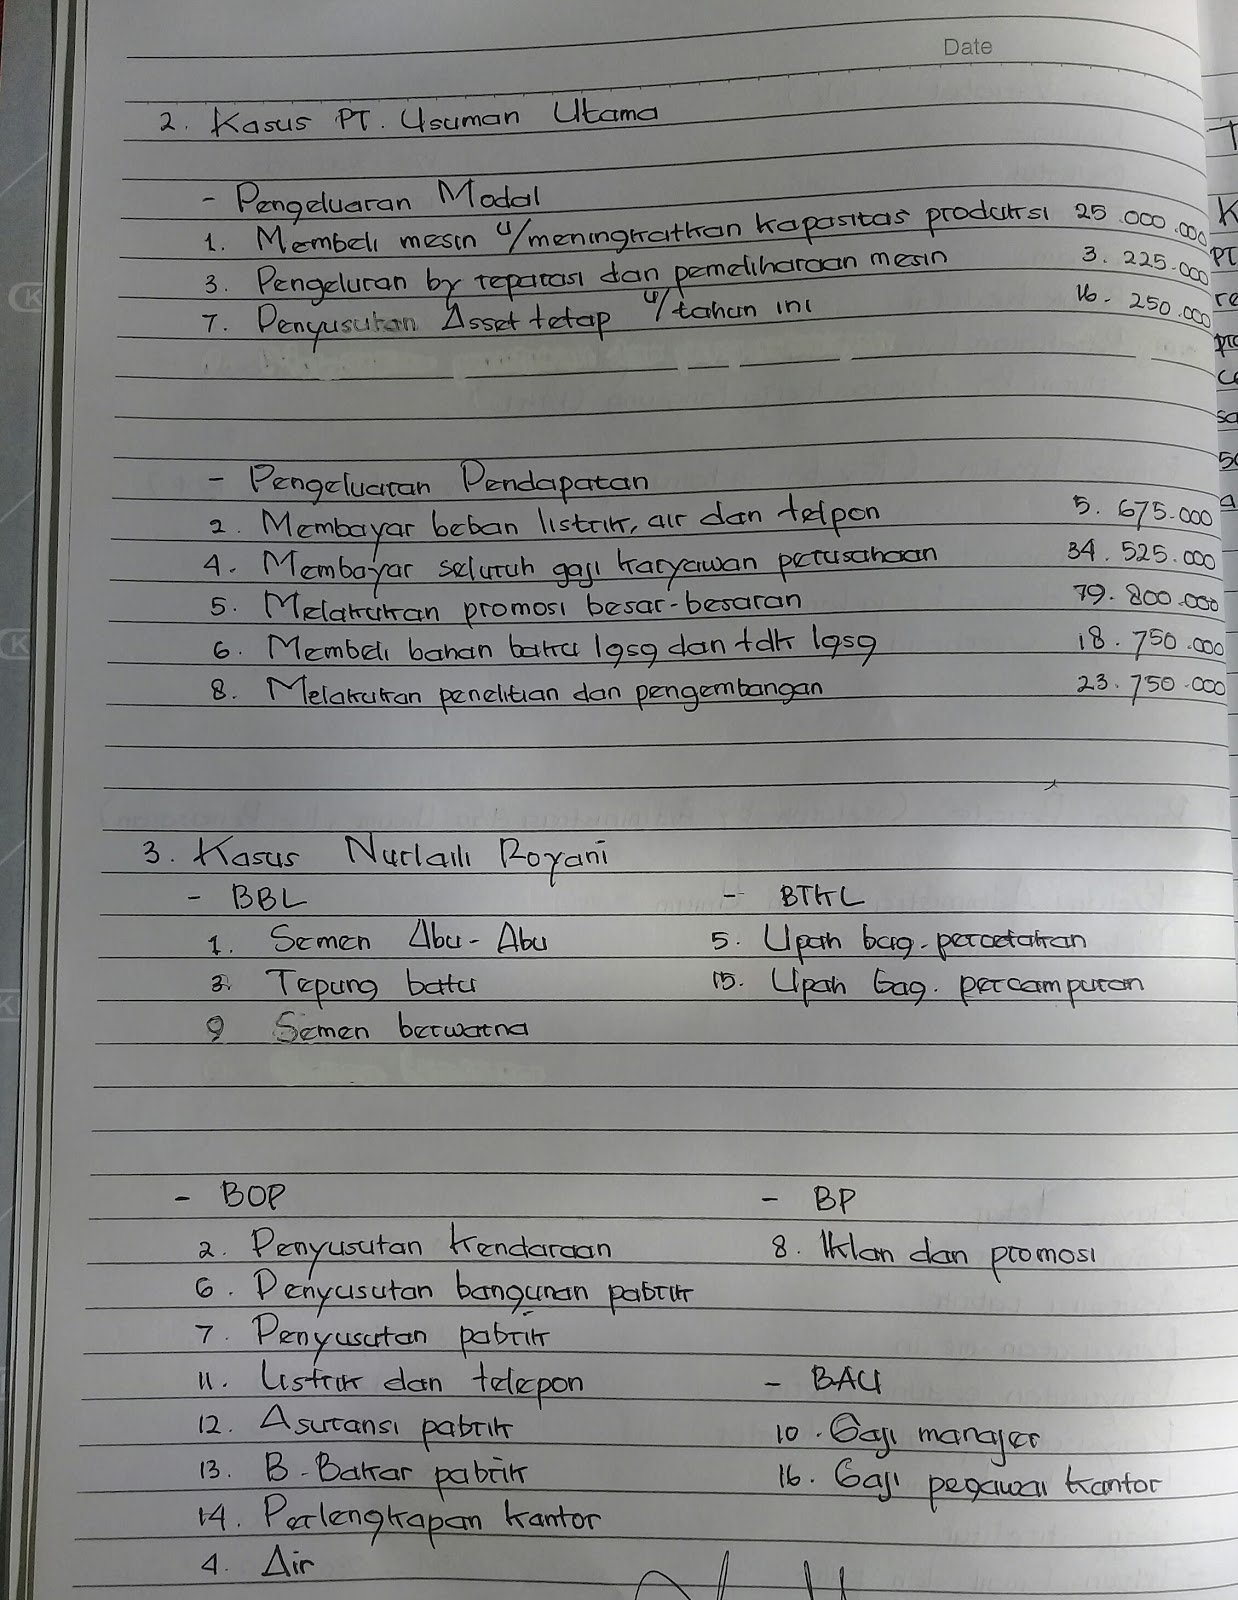 Date
2. Kasus PT. Usuman Utama
- Pengeluaran Modal
1. Membeli mesin u/meningkatkan kapasitas produksi 25.000.000
3. Pengeluran by reparasi dan pemeliharaan mesin 3.225.000
7. Penyusutan Asset tetap u/tahun ini 16.250.000
- Pengeluaran Pendapatan
2. Membayar beban listrik, air dan telpon 5.675.000
4. Membayar seluruh gaji karyawan perusahaan 34.525.000
5. Melakukan promosi besar-besaran 79.800.000
6. Membeli bahan baku lgsg dan tdk lgsg 18.750.000
8. Melakukan penelitian dan pengembangan 23.750.000
3. Kasus Nurlaili Royani
- BBL - BTKL
1. Semen Abu-Abu 5. Upah bag. percetakan
3. Tepung batu 15. Upah bag. percampuran
9 Semen berwarna
- BOP - BP
2. Penyusutan Kendaraan 8. Iklan dan promosi
6. Penyusutan bangunan pabrik
7. Penyusutan pabrik
11. Listrik dan telepon - BAU
12. Asuransi pabrik 10. Gaji manajer
13. B-Bakar pabrik 16. Gaji pegawai kantor
14. Perlengkapan kantor
4. Air